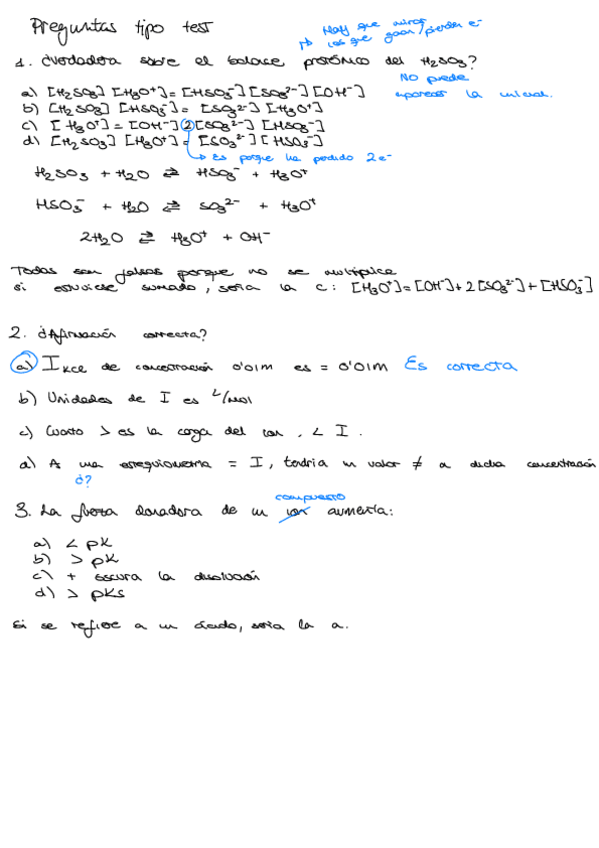 Preguntas tipo test
Hay que mirar
↳ los que ganan/pierden e⁻
1. ¿Verdadera sobre el balance protónico del H₂SO₃?
No puede
aparecer la inicial.
a) [H₂SO₃] [H₃O⁺] = [HSO₃⁻] [SO₃²⁻] [OH⁻]
b) [H₂SO₃] [HSO₃⁻] = [SO₃²⁻] [H₃O⁺]
c) [H₃O⁺] = [OH⁻] 2 [SO₃²⁻] [HSO₃⁻]
d) [H₂SO₃] [H₃O⁺] = [SO₃²⁻] [HSO₃⁻]
↳ Es porque ha perdido 2e⁻
H₂SO₃ + H₂O ⇌ HSO₃⁻ + H₃O⁺
HSO₃⁻ + H₂O ⇌ SO₃²⁻ + H₃O⁺
2H₂O ⇌ H₃O⁺ + OH⁻
Todas son falsas porque no se multiplica
si estuviese sumado, sería la c: [H₃O⁺] = [OH⁻] + 2[SO₃²⁻] + [HSO₃⁻]
2. ¿Afirmación correcta?
a) I KCl de concentración 0'01M es = 0'01M Es correcta
b) Unidades de I es L/mol
c) Cuanto > es la carga del ion, < I.
d) A una estequiometría = I, tendría un valor ≠ a dicha concentración
¿?
compuesto
3. La fuerza donadora de un ion aumenta:
a) < pK
b) > pK
c) + oscura la disolución
d) > pKs
Si se refiere a un ácido, sería la a.